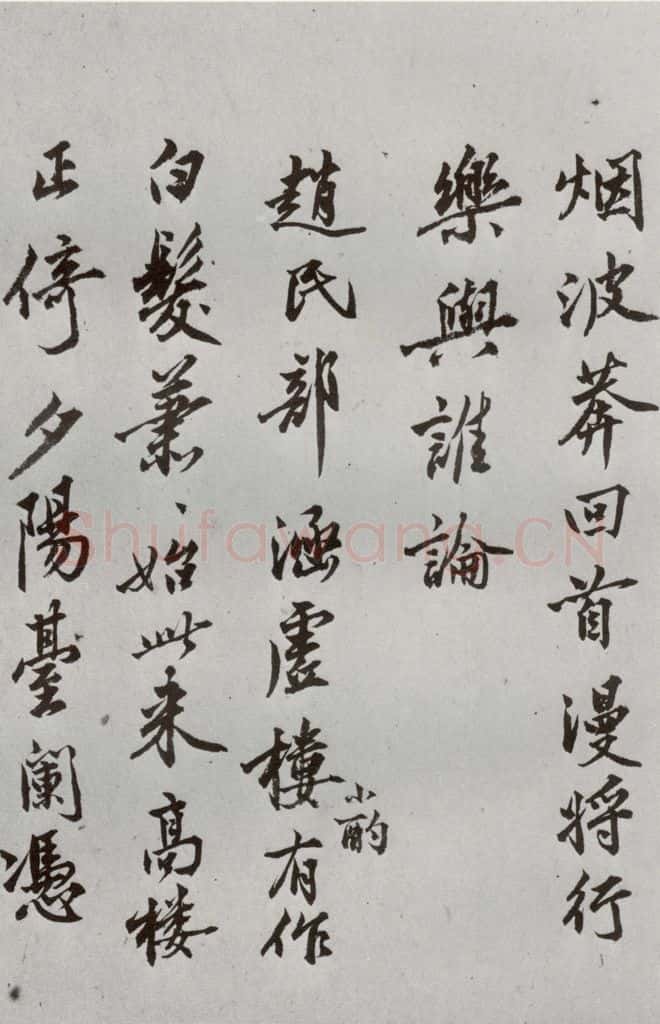 烟波莽回首漫将行
樂與誰論
趙民部涵虛樓小酌有作
白髮蕭、始此来高楼
正倚夕陽臺闌憑
Shufawang.CN